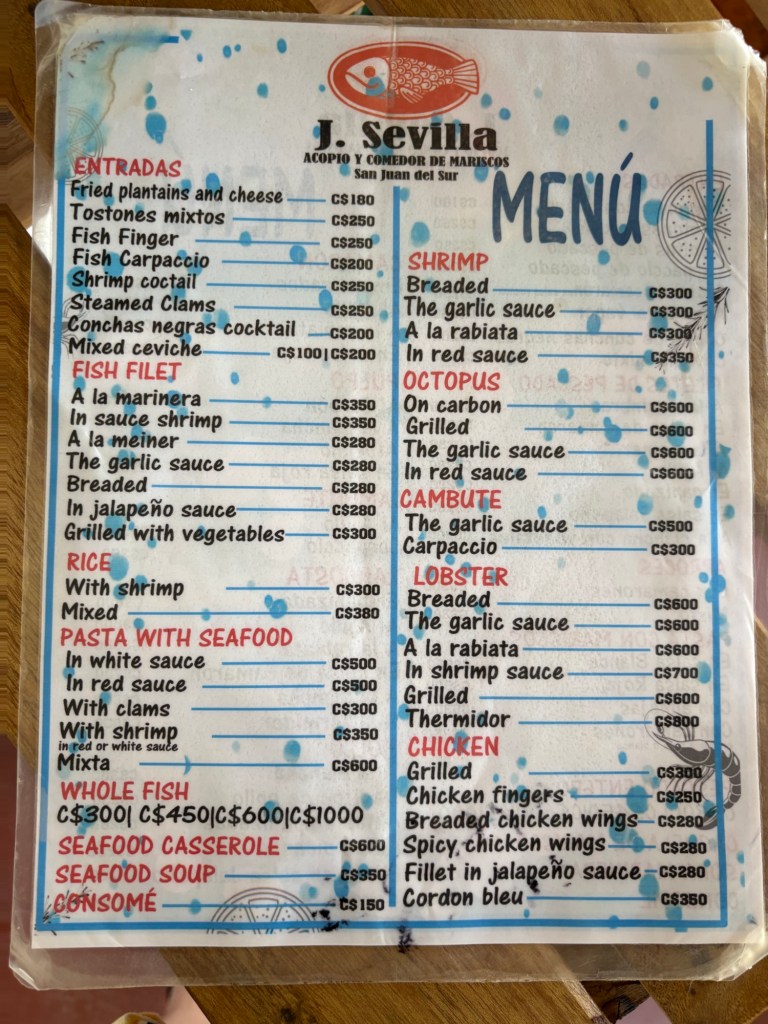 J. Sevilla
ACOPIO Y COMEDOR DE MARISCOS
San Juan del Sur
MENÚ
ENTRADAS
Fried plantains and cheese C$180
Tostones mixtos C$250
Fish Finger C$250
Fish Carpaccio C$200
Shrimp coctail C$250
Steamed Clams C$250
Conchas negras cocktail C$200
Mixed ceviche C$100|C$200
FISH FILET
A la marinera C$350
In sauce shrimp C$350
A la meiner C$280
The garlic sauce C$280
Breaded C$280
In jalapeño sauce C$280
Grilled with vegetables C$300
RICE
With shrimp C$300
Mixed C$380
PASTA WITH SEAFOOD
In white sauce C$500
In red sauce C$500
With clams C$300
With shrimp C$350
in red or white sauce
Mixta C$600
WHOLE FISH
C$300| C$450|C$600|C$1000
SEAFOOD CASSEROLE C$600
SEAFOOD SOUP C$350
CONSOMÉ C$150
SHRIMP
Breaded C$300
The garlic sauce C$300
A la rabiata C$300
In red sauce C$350
OCTOPUS
On carbon C$600
Grilled C$600
The garlic sauce C$600
In red sauce C$600
CAMBUTE
The garlic sauce C$500
Carpaccio C$300
LOBSTER
Breaded C$600
The garlic sauce C$600
A la rabiata C$600
In shrimp sauce C$700
Grilled C$600
Thermidor C$800
CHICKEN
Grilled C$300
Chicken fingers C$250
Breaded chicken wings C$280
Spicy chicken wings C$280
Fillet in jalapeño sauce C$280
Cordon bleu C$350